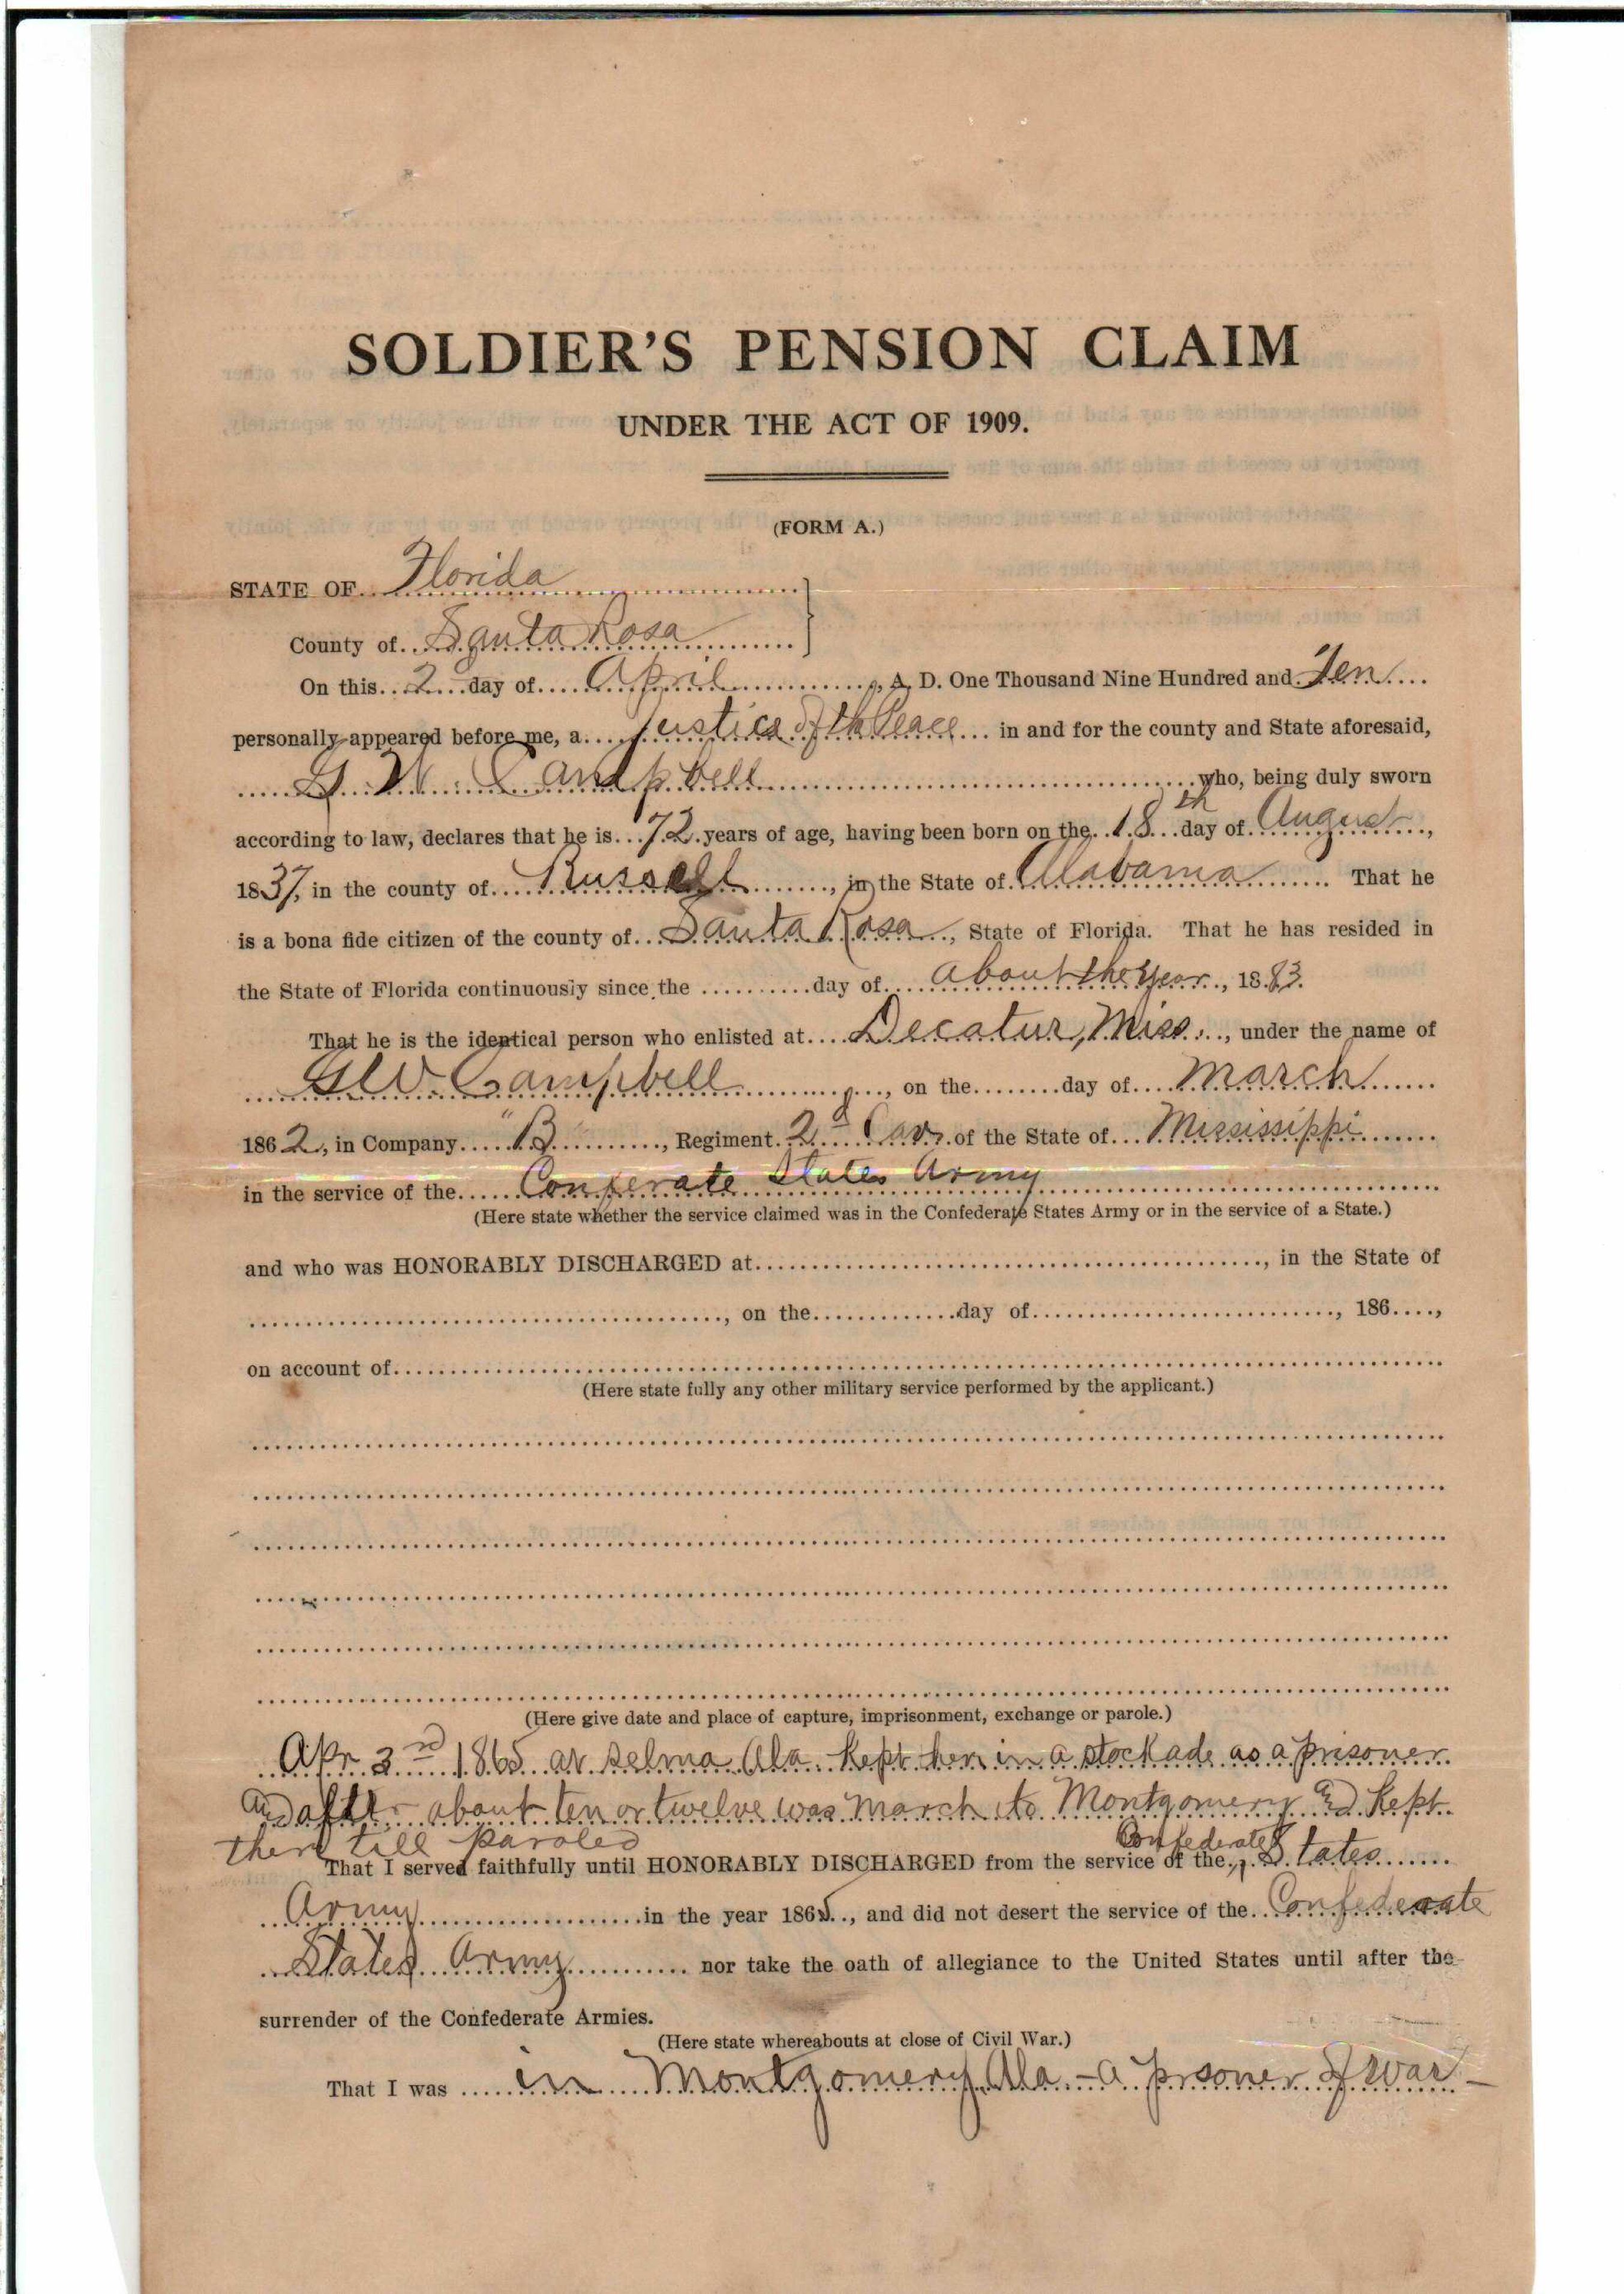 SOLDIER'S PENSION CLAIM
UNDER THE ACT OF 1909.
(FORM A.)
STATE OF Florida
County of Santa Rosa
On this 2 day of April, A. D. One Thousand Nine Hundred and Ten
personally appeared before me, a Justice of th Peace in and for the county and State aforesaid,
G. W. Campbell who, being duly sworn
according to law, declares that he is 72 years of age, having been born on the 18th day of August,
1837, in the county of Russell, in the State of Alabama That he
is a bona fide citizen of the county of Santa Rosa, State of Florida. That he has resided in
the State of Florida continuously since the day of about the year, 1883.
That he is the identical person who enlisted at Decatur, Miss., under the name of
G W. Campbell, on the day of March
1862, in Company "B, Regiment 2d Cav. of the State of Mississippi
in the service of the Conferate States Army
(Here state whether the service claimed was in the Confederate States Army or in the service of a State.)
and who was HONORABLY DISCHARGED at, in the State of
, on the day of, 186,
on account of
(Here state fully any other military service performed by the applicant.)
(Here give date and place of capture, imprisonment, exchange or parole.)
Apr 3rd 1865 at Selma Ala. Kept her in a stockade as a prisoner
and after about ten or twelve was march to Montgomery and Kept
there till paroled
That I served faithfully until HONORABLY DISCHARGED from the service of the Confederate States
Army in the year 1865, and did not desert the service of the Confederate
States Army nor take the oath of allegiance to the United States until after the
surrender of the Confederate Armies.
(Here state whereabouts at close of Civil War.)
That I was in Montgomery Ala - a prsoner of war -